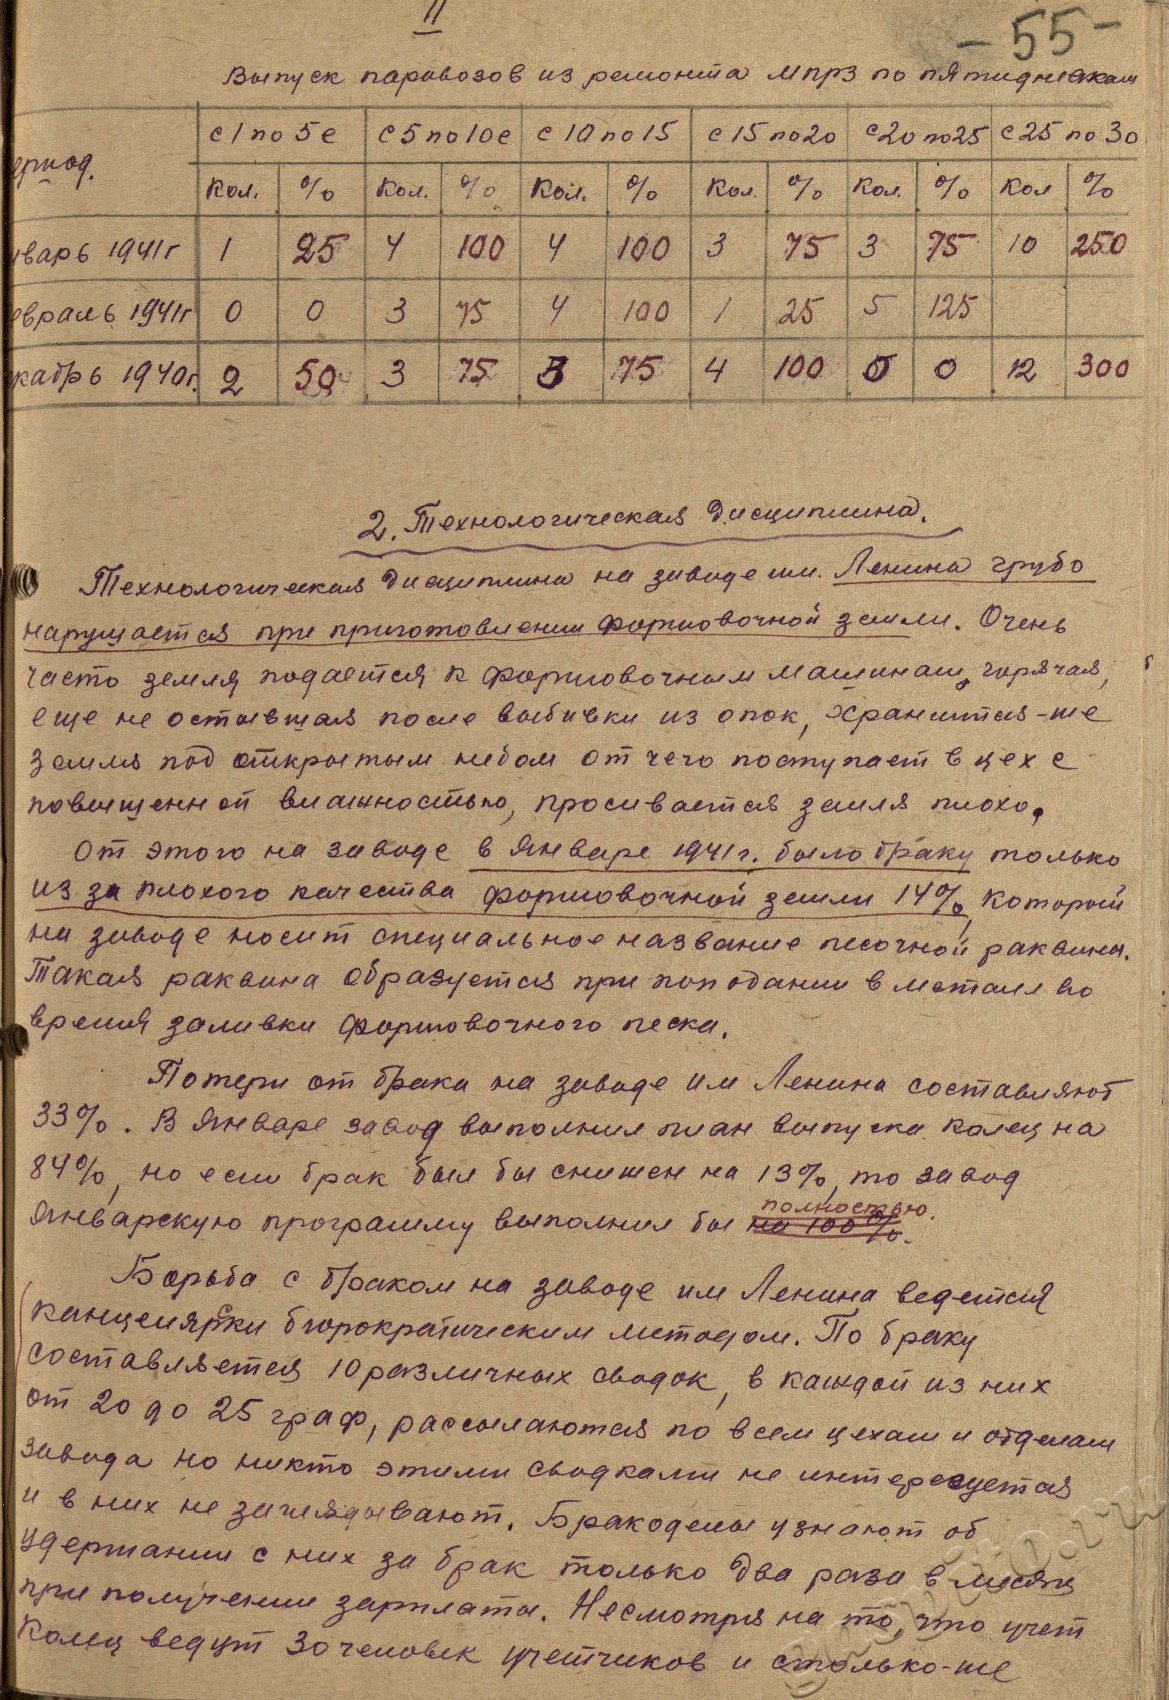 II
- 55 -
Выпуск паровозов из ремонта МПРЗ по пятидневкам
ериод. с 1 по 5е с 5 по 10е с 10 по 15 с 15 по 20 с 20 по 25 с 25 по 30
Кол. % Кол. % Кол. % Кол. % Кол. % Кол %
нварь 1941г 1 25 4 100 4 100 3 75 3 75 10 250
евраль 1941г 0 0 3 75 4 100 1 25 5 125
кабрь 1940г. 2 50 3 75 3 75 4 100 0 0 12 300
2. Технологическая дисциплина.
Технологическая дисциплина на заводе им. Ленина грубо
нарушается при приготовлении формовочной земли. Очень
часто земля подается к формовочным машинам, горячая,
еще не остывшая после выбивки из опок, хранится-же
земля под открытым небом от чего поступает в цех с
повышенной влажностью, просивается земля плохо.
От этого на заводе в январе 1941г. было браку только
из за плохого качества формовочной земли 14%, который
на заводе носит специальное название песочной раквины.
Такая раквина образуется при поподании в металл во
время заливки формовочного песка.
Потери от брака на заводе им Ленина составляют
33%. В январе завод выполнил план выпуска колец на
84%, но если брак был бы снижен на 13%, то завод
полностью.
январскую программу выполнил бы на 100%.
Борьба с браком на заводе им Ленина ведется
канцелярски бюрократическим методом. По браку
составляется 10 различных сводок, в каждой из них
от 20 до 25 граф, рассылаются по всем цехам и отделам
завода но никто этими сводками не интересуется
и в них не заглядывают. Бракоделы узнают об
удержании с них за брак только два раза в месяц
при получении зарплаты. Несмотря на то, что учет
колец ведут 30 человек учетчиков и столько-же